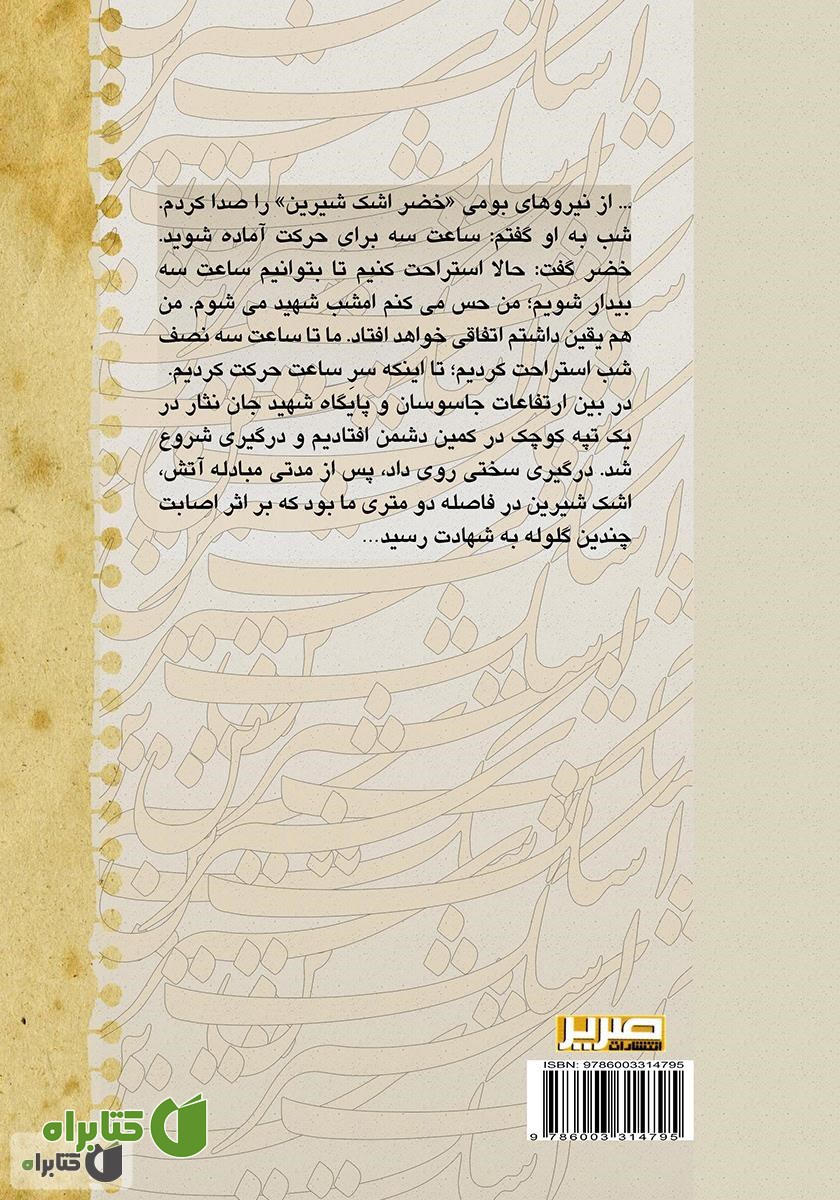 ... از نیروهای بومی «خضر اشک شیرین» را صدا کردم.
شب به او گفتم: ساعت سه برای حرکت آماده شوید.
خضر گفت: حالا استراحت کنیم تا بتوانیم ساعت سه
بیدار شویم؛ من حس می کنم امشب شهید می شوم. من
هم یقین داشتم اتفاقی خواهد افتاد. ما تا ساعت سه نصف
شب استراحت کردیم؛ تا اینکه سرِ ساعت حرکت کردیم.
در بین ارتفاعات جاسوسان و پایگاه شهید جان نثار در
یک تپه کوچک در کمین دشمن افتادیم و درگیری شروع
شد. درگیری سختی روی داد، پس از مدتی مبادله آتش،
اشک شیرین در فاصله دو متری ما بود که بر اثر اصابت
چندین گلوله به شهادت رسید...
صریر
انتشارات
ISBN: 9786003314795
9 786003 314795
کتابراه
کتابراه